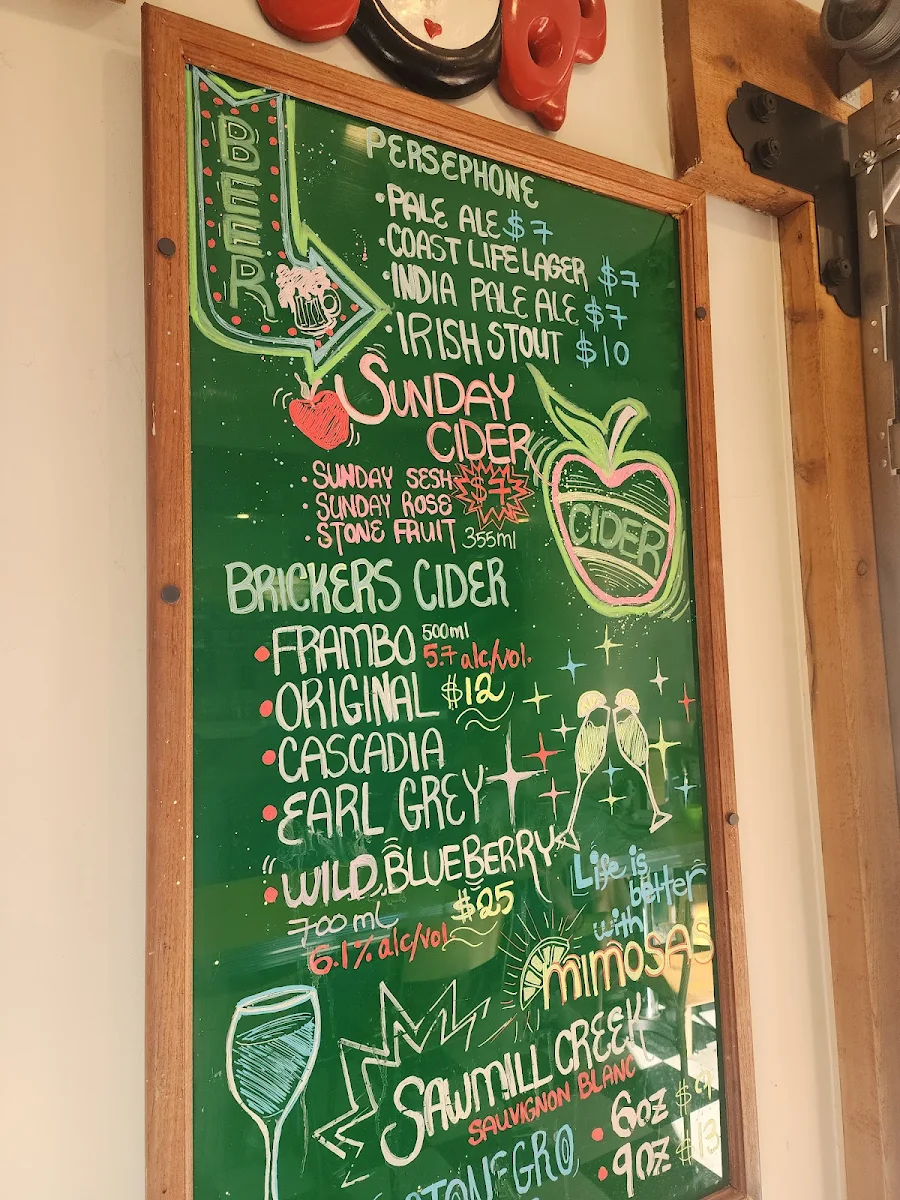 BEER
PERSEPHONE
•PALE ALE $7
•COAST LIFE LAGER $7
•INDIA PALE ALE $7
•IRISH STOUT $10
SUNDAY
CIDER
•SUNDAY SESH $7
•SUNDAY ROSE
•STONE FRUIT 355ml
CIDER
BRICKERS CIDER
•FRAMBO 500ml
5.7 alc/vol.
•ORIGINAL $12
•CASCADIA
•EARL GREY
•WILD BLUEBERRY
700 ml $25
6.1% alc/vol
Life is
better
with
mimosas
SAWMILL CREEK
SAUVIGNON BLANC
•6oz
•9oz $13